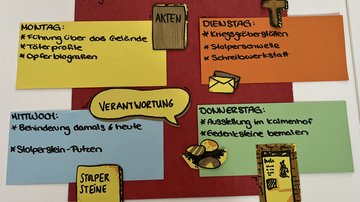 MONTAG:
* Führung über das Gelände
* Täterprofile
* Opferbiografien
AKTEN
DIENSTAG:
* Kriegsgräberstätten
* Stolperschwelle
* Schreibwerkstatt
VERANTWORTUNG
MITTWOCH:
* Behinderung damals & heute
* Stolperstein-Putzen
STOLPER
STEINE
DONNERSTAG:
* Ausstellung im Kalmenhof
* Gedenksteine bemalen